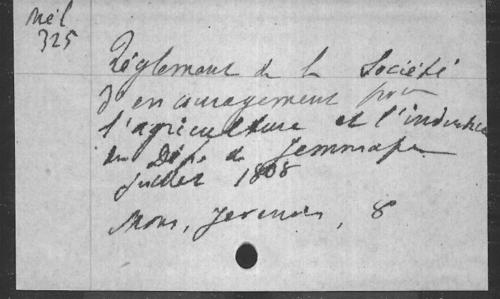 Mél
325
Réglement de la Société
d'encouragement pour
l'agriculture et l'industrie
du Dép. de Jemmape
Juillet 1808
Mons, 8